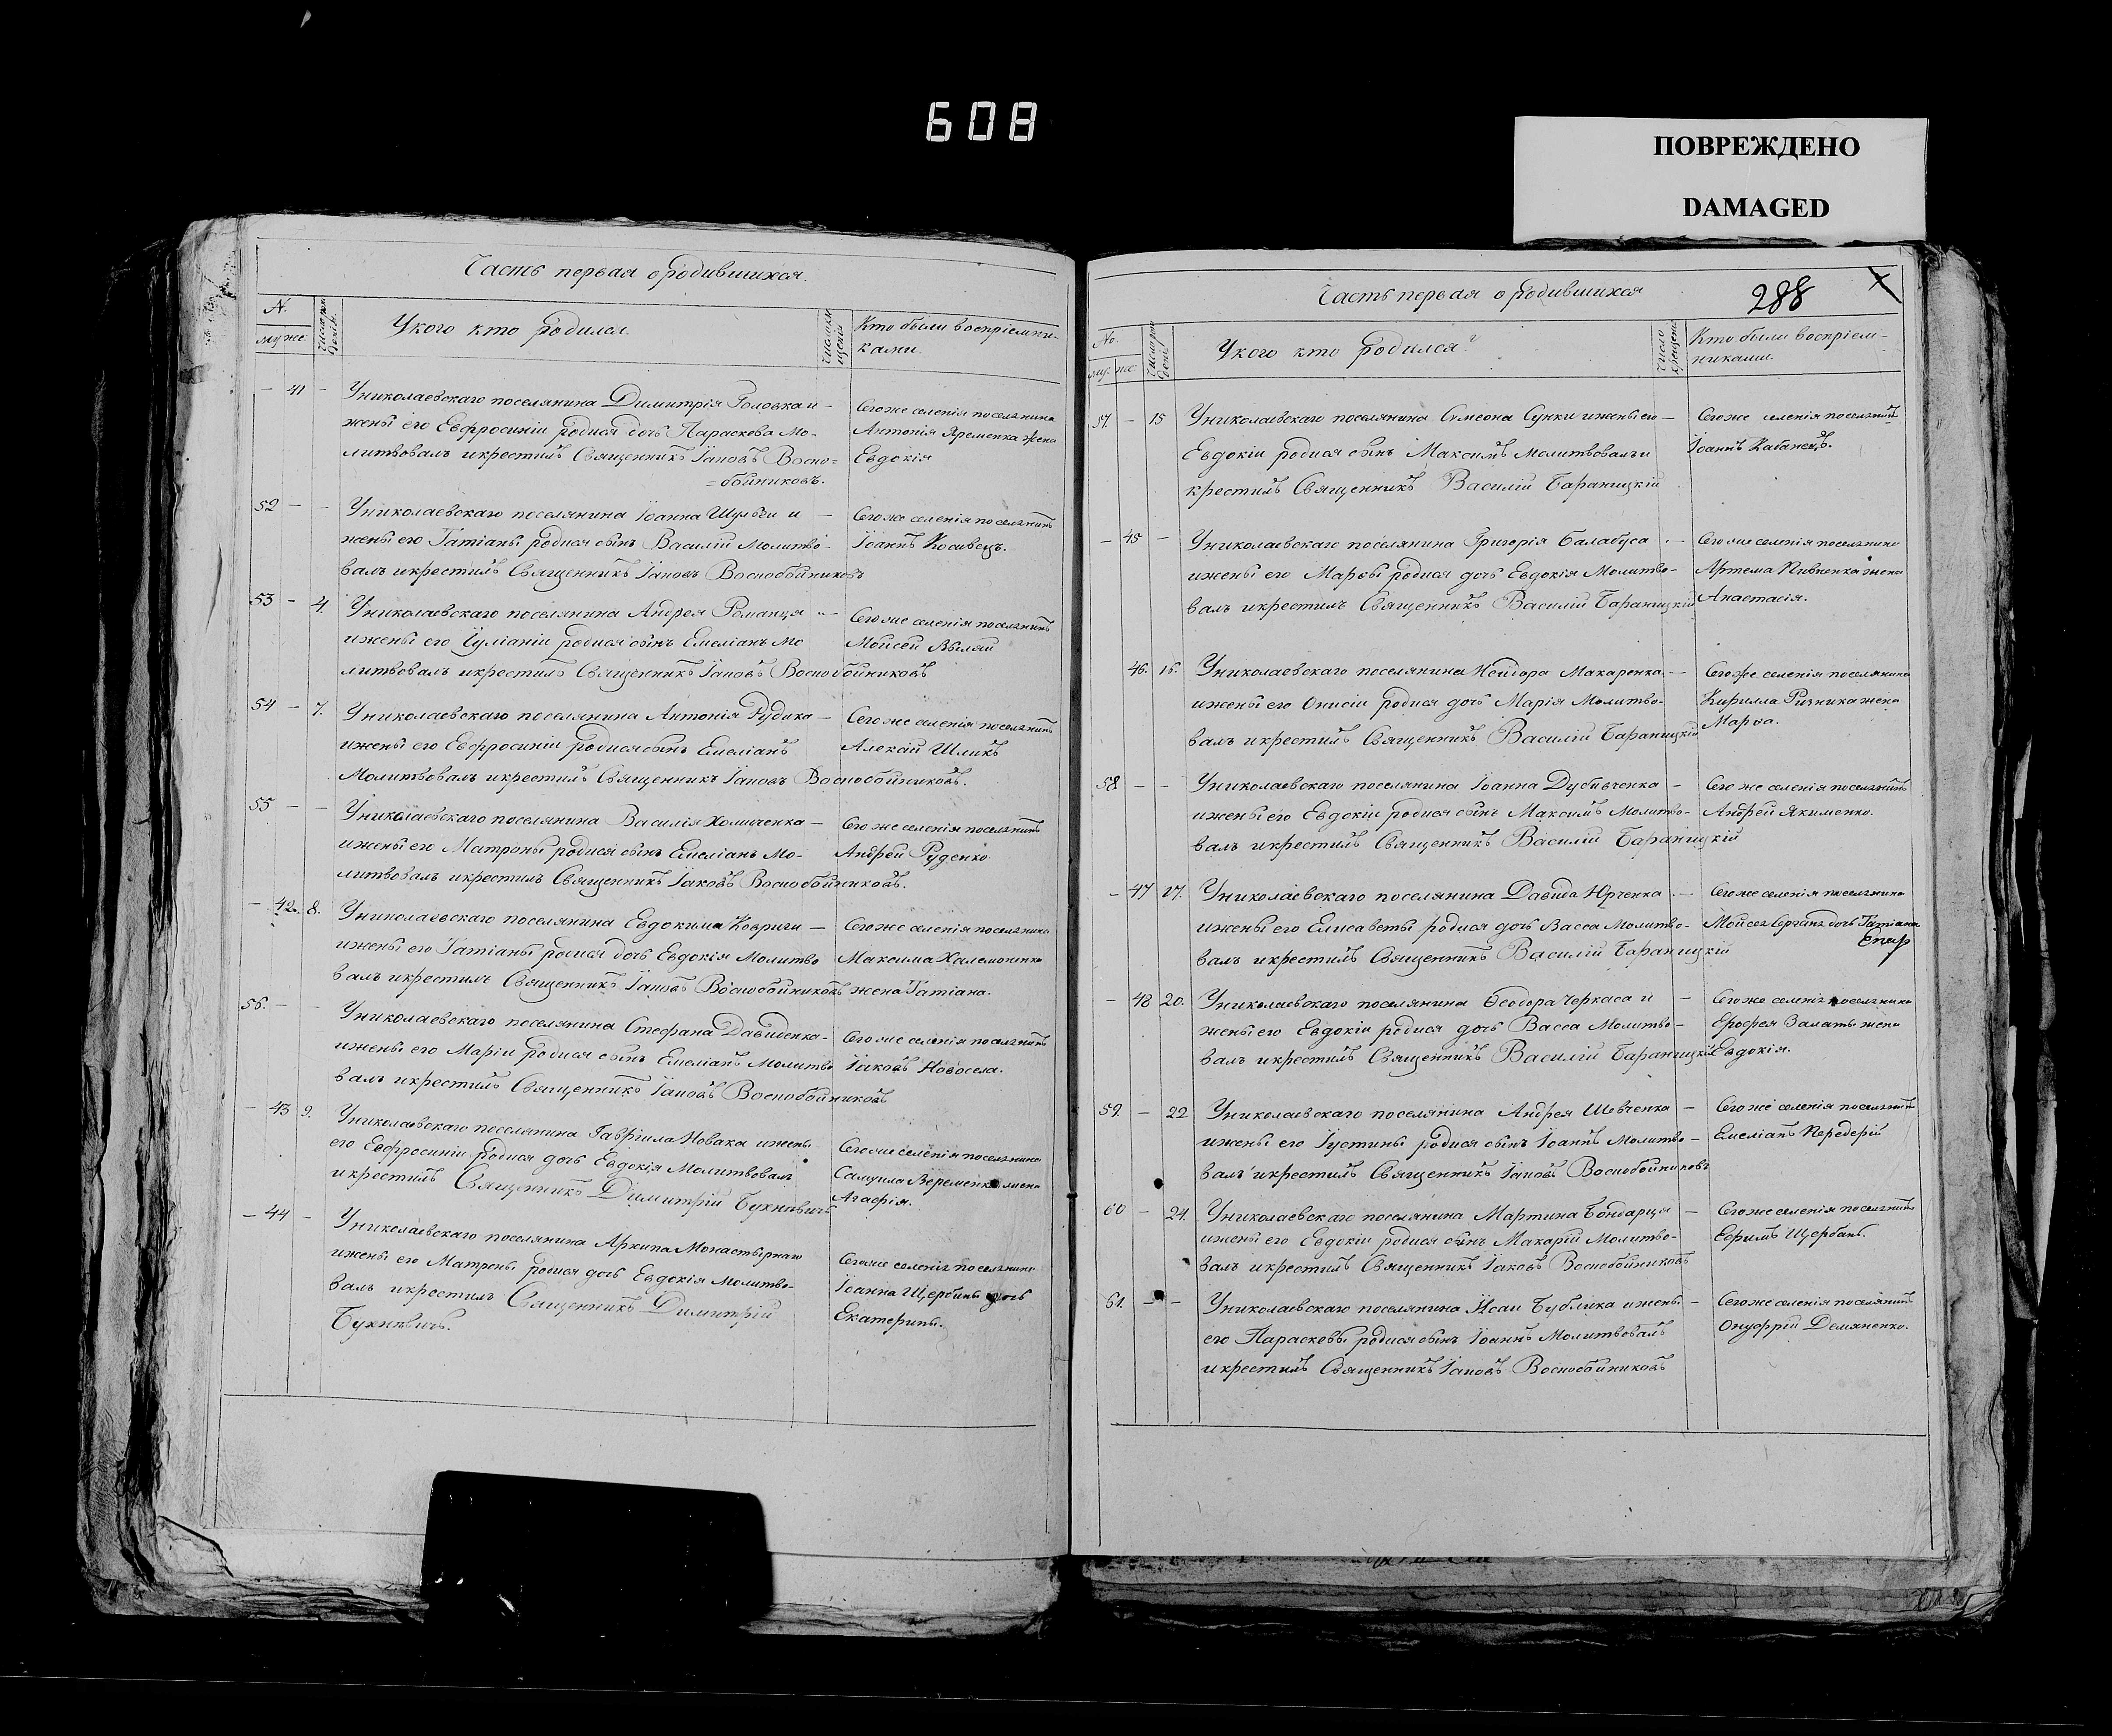 608
ПОВРЕЖДЕНО
DAMAGED
Часть первая о родившихся.
N.
муж же
У кого кто родился.
Кто были воспріемни-
ками.
41 Униколаевскаго поселянина Димитрія Головка и
жены его Евфросиніи родися дочь Параскева Мо-
литвовалъ икрестилъ Священникъ Іаковъ Воско-
=бойниковъ.
Сегоже селенія поселянина
Антонія Яременка жена
Евдокія
52 Униколаевскаго поселянина Іоанна Шульги и
жены его Татіаны родися сынъ Василій Молитво-
валъ икрестилъ Священникъ Іаковъ Воскобойниковъ
Сегоже селенія поселянинъ
Іоаннъ Косивецъ.
53 4. Униколаевскаго поселянина Андрея Романца
ижены его Іуліаніи родися сынъ Емеліанъ Мо
литвовалъ икрестилъ Священникъ Іаковъ Воскобойниковъ
Сегоже селенія поселянинъ
Мойсей
54 7. Униколаевскаго поселянина Антонія Рудика
ижены его Евфросиніи родися сынъ Емеліанъ
Молитвовалъ икрестилъ Священникъ Іаковъ Воскобойниковъ.
Сегоже селенія поселянинъ
Алексій Шликъ
55 Униколаевскаго поселянина Василія Хомиченка
ижены его Матроны родися сынъ Емеліанъ Мо-
литвовалъ икрестилъ Священникъ Іаковъ Воскобойниковъ.
Сегоже селенія поселянинъ
Андрей Руденко.
42. 8. Униколаевскаго поселянина Евдокима Ковриги
ижены его Татіаны родися дочь Евдокія Молитво
валъ икрестилъ Священникъ Іаковъ Воскобойниковъ
Сегоже селенія поселянина
Максима
жена Татіана.
56. Униколаевскаго поселянина Стефана Давиденка
ижены его Маріи родися сынъ Емеліанъ Молитво
валъ икрестилъ Священникъ Іаковъ Воскобойниковъ
Сегоже селенія поселянинъ
Іаковъ Новосела.
43 9. Униколаевскаго поселянина Гавріила Новака ижены
его Евфросиніи родися дочь Евдокія Молитвовалъ
икрестилъ Священникъ Димитрій Бухневичъ
Сегоже селенія поселянина
Самуила Веременка жена
Агафія.
44 Униколаевскаго поселянина Архипа Монастырнаго
ижены его Матрены родися дочь Евдокія Молитво-
валъ икрестилъ Священникъ Димитрій
Бухневичъ.
Сегоже селенія поселянина
Іоанна Щербины дочь
Екатерина.
Часть первая о родившихся
288
No.
му. же.
У кого кто родился?
число крещенія
Кто были воспріем-
никами.
57. 15 Униколаевскаго поселянина Симеона Сунки ижены его
Евдокіи родися сынъ Максимъ Молитвовалъ и
крестилъ Священникъ Василій Бараницкій
Сегоже селенія поселянинъ
Іоаннъ Кабанецъ.
45 Униколаевскаго поселянина Григорія Балабуса
ижены его Марѳы родися дочь Евдокія Молитво-
валъ икрестилъ Священникъ Василій Бараницкій
Сегоже селенія поселянина
Артема Пивненка жена
Анастасія.
46. 16. Униколаевскаго поселянина Исидора Макаренка
ижены его Онисіи родися дочь Марія Молитво-
валъ икрестилъ Священникъ Василій Бараницкій
Сегоже селенія поселянина
Кирилла Ризника жена
Марѳа.
58 Униколаевскаго поселянина Іоанна Дубивченка
ижены его Евдокіи родися сынъ Максимъ Молитво-
валъ икрестилъ Священникъ Василій Бараницкій
Сегоже селенія поселянинъ
Андрей Якименко.
47 17. Униколаевскаго поселянина Давида Юрченка
ижены его Елисаветы родися дочь Васса Молитво-
валъ икрестилъ Священникъ Василій Бараницкій
Сегоже селенія поселянина
Мойсея дочь Татіана
48 20. Униколаевскаго поселянина Ѳеодора Черкаса и
жены его Евдокіи родися дочь Васса Молитво-
валъ икрестилъ Священникъ Василій Бараницкій
Сегоже селенія поселянина
Ерофея жена
Евдокія.
59. 22 Униколаевскаго поселянина Андрея Шевченка
ижены его Іустины родися сынъ Іоаннъ Молитво-
валъ икрестилъ Священникъ Іаковъ Воскобойниковъ
Сегоже селенія поселянинъ
Емеліанъ Передерій
60 24. Униколаевскаго поселянина Мартина Бондарца
ижены его Евдокіи родися сынъ Макарій Молитво-
валъ икрестилъ Священникъ Іаковъ Воскобойниковъ
Сегоже селенія поселянинъ
Ефримъ Щербань.
61. Униколаевскаго поселянина Исаи Бублика ижены
его Параскевы родися сынъ Іоаннъ Молитвовалъ
икрестилъ Священникъ Іаковъ Воскобойниковъ
Сегоже селенія поселянинъ
Онуфрій Демяненко.